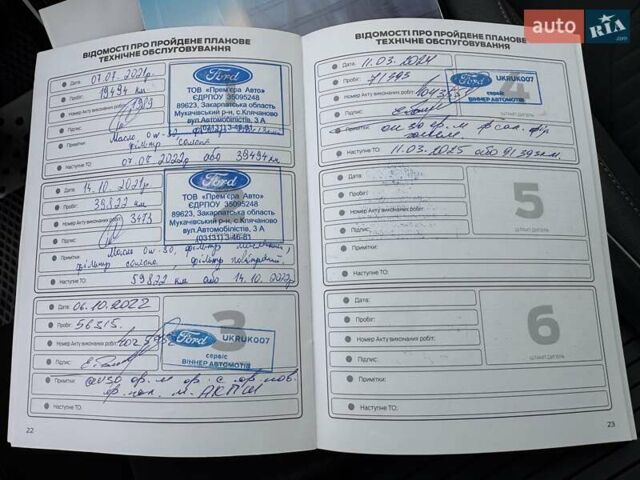 auto RIA
.com
ВІДОМОСТІ ПРО ПРОЙДЕНЕ ПЛАНОВЕ
ТЕХНІЧНЕ ОБСЛУГОВУВАННЯ
Дата: 07.07.2021р.
Пробіг: 19494 км
Номер Акту виконаних робіт: 1913
Підпис:
Примітки: Масло 0w-30,
фільтр салона
Наступне ТО: 07.07.2022р або 39494 км
Ford
ТОВ «Прем'єра Авто»
ЄДРПОУ 35095248
89623, Закарпатська область
Мукачівський р-н, с.Клячаново
вул.Автомобілістів, 3 А
Дата: 14.10.2021р.
Пробіг: 39822 км
Номер Акту виконаних робіт: 3473
Підпис:
Примітки: Масло 0w-30, фільтр масляний,
фільтр салона, фільтр повітряний,
Наступне ТО: 59822 км або 14.10.2022р
Ford
ТОВ «Прем'єра Авто»
ЄДРПОУ 35095248
89623, Закарпатська область
Мукачівський р-н, с.Клячаново
вул.Автомобілістів, 3 А
(03131) 3-46-81
Дата: 06.10.2022
Пробіг: 56315
Номер Акту виконаних робіт:
Підпис:
Примітки:
АКПП
Наступне ТО:
3
Ford UKRUK007
сервіс
ВІННЕР АВТОМОТІВ
22
ВІДОМОСТІ ПРО ПРОЙДЕНЕ ПЛАНОВЕ
ТЕХНІЧНЕ ОБСЛУГОВУВАННЯ
Дата: 11.03.2024
Пробіг: 71393
Номер Акту виконаних робіт:
Підпис:
Примітки:
Наступне ТО: 11.03.2025 або 91393км.
4
Ford UKRUK007
сервіс
ВІННЕР АВТОМОТІВ
Дата:
Пробіг:
Номер Акту виконаних робіт:
Підпис:
Примітки:
Наступне ТО:
5
ШТАМП ДИЛЕРА
Дата:
Пробіг:
Номер Акту виконаних робіт:
Підпис:
Примітки:
Наступне ТО:
6
ШТАМП ДИЛЕРА
23